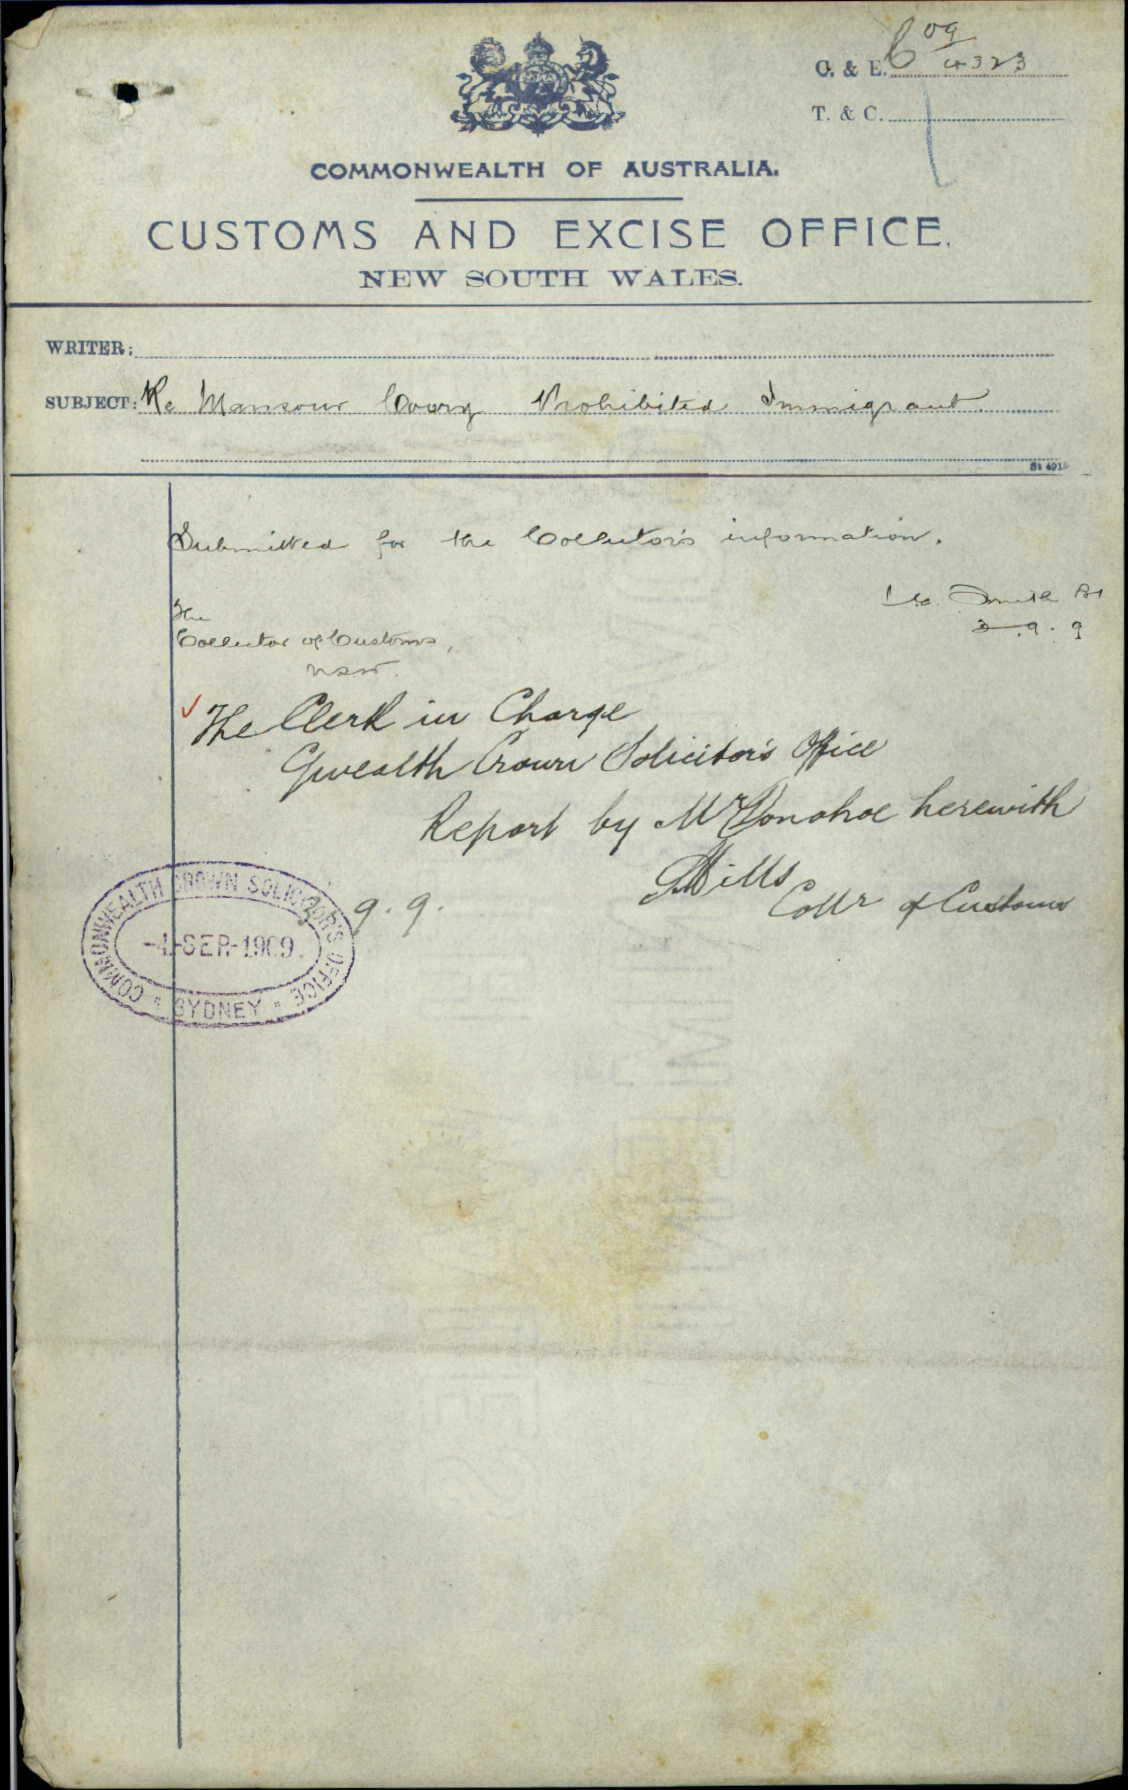 C. & E. C 09/4323
T. & C.
COMMONWEALTH OF AUSTRALIA.
CUSTOMS AND EXCISE OFFICE.
NEW SOUTH WALES.
WRITER:
SUBJECT: Re Mansour Coory Prohibited Immigrant
St 491
Submitted for the Collector's information.
3.9.9
The
Collector of Customs,
NSW.
The Clerk in Charge
Cwealth Crown Solicitor's Office
Report by Mr Donohoe herewith
Mills
Collr of Customs
9.9.
COMMONWEALTH CROWN SOLICITOR'S OFFICE
-4-SEP.-1909.
SYDNEY